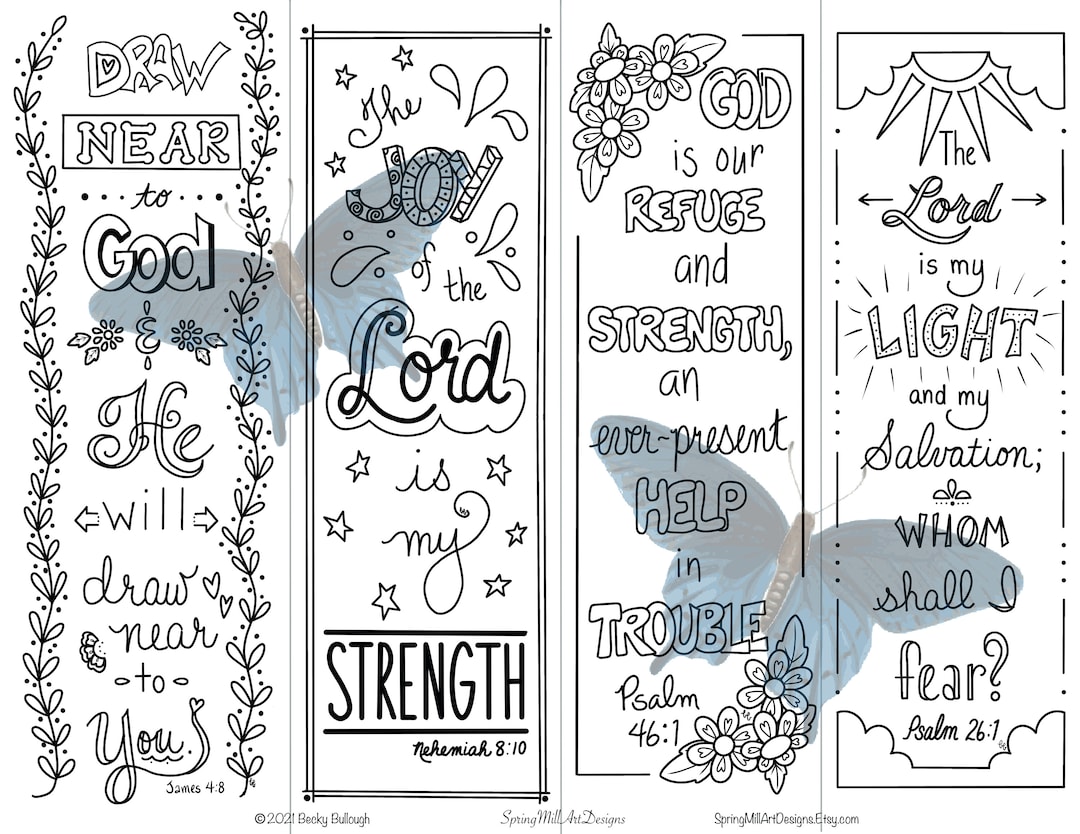 DRAW
NEAR
to
God
&
He
will
draw
near
to
You.
James 4:8
The
JOY
of the
Lord
is
my
STRENGTH
Nehemiah 8:10
GOD
is our
REFUGE
and
STRENGTH,
an
ever-present
HELP
in
TROUBLE
Psalm
46:1
The
Lord
is my
LIGHT
and my
Salvation;
WHOM
shall I
fear?
Psalm 26:1
©2021 Becky Bullough
SpringMillArtDesigns
SpringMillArtDesigns.Etsy.com